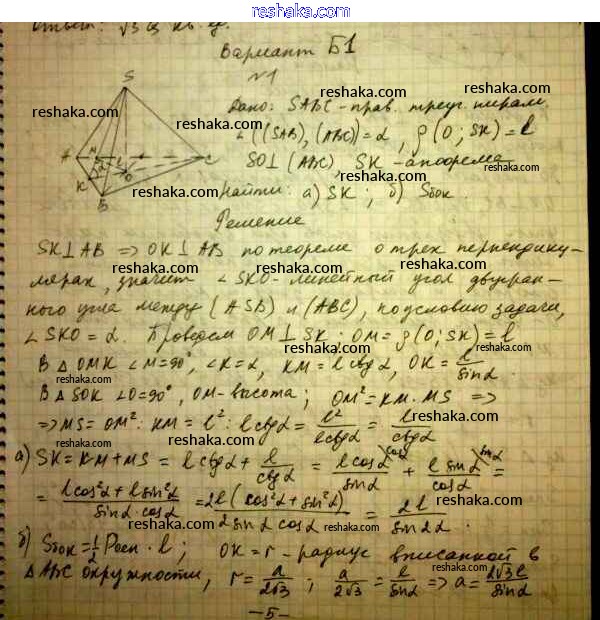 reshaka.com
Ответ: √3 a кв. ед.
Вариант Б1
№1
Дано: SABC - прав. треуг. пирам.
∠((SAB), (ABC)) = α, ρ(O; SK) = l
SO ⊥ (ABC) SK - апофема
Найти: а) SK; б) Sбок.
Решение
SK ⊥ AB => OK ⊥ AB по теореме о трех перпендику-
лярах, значит ∠SKO - линейный угол двугран-
ного угла между (ASB) и (ABC), по условию задачи,
∠SKO = α. Проведем OM ⊥ SK; OM = ρ(O; SK) = l
В △OMK ∠M = 90°, ∠K = α, KM = l ctgα, OK = l/sinα
В △SOK ∠O = 90°, OM - высота; OM² = KM · MS =>
=> MS = OM² : KM = l² : l ctgα = l²/(l ctgα) = l/ctgα
а) SK = KM + MS = l ctgα + l/ctgα = l cosα/sinα + l sinα/cosα =
= (l cos²α + l sin²α)/(sinα · cosα) = 2l(cos²α + sin²α)/(2 sinα cosα) = 2l/sin2α.
б) Sбок = 1/2 Pосн · l; OK = r - радиус вписанной в
△ABC окружности, r = a/2√3; a/2√3 = l/sinα => a = 2√3l/sinα
- 5 -